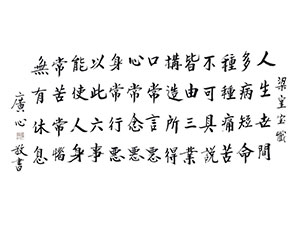 梁皇宝懺
人生世間
多病短命
種種痛苦
不可具說
皆由三業
構造所得
口常言惡
心常念惡
身常行惡
以此六事
能使人身
常苦常惱
無有休息
廣心敬書